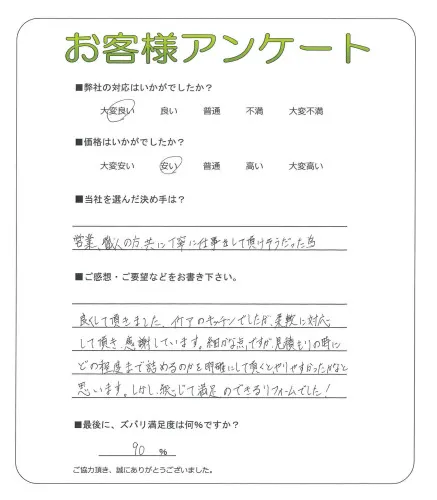 お客様アンケート
■弊社の対応はいかがでしたか？
大変良い 良い 普通 不満 大変不満
■価格はいかがでしたか？
大変安い 安い 普通 高い 大変高い
■当社を選んだ決め手は？
営業、職人の方共に丁寧に仕事をして頂けそうだった為
■ご感想・ご要望などをお書き下さい。
良くして頂きました。イケアのキッチンでしたが、柔軟に対応
して頂き、感謝しています。細かな点ですが、見積もりの時に
どの程度まで詰めるのかを明確にして頂くとやりやすかったかなと
思います。しかし、総じて満足のできるリフォームでした！
■最後に、ズバリ満足度は何％ですか？
90 ％
ご協力頂き、誠にありがとうございました。